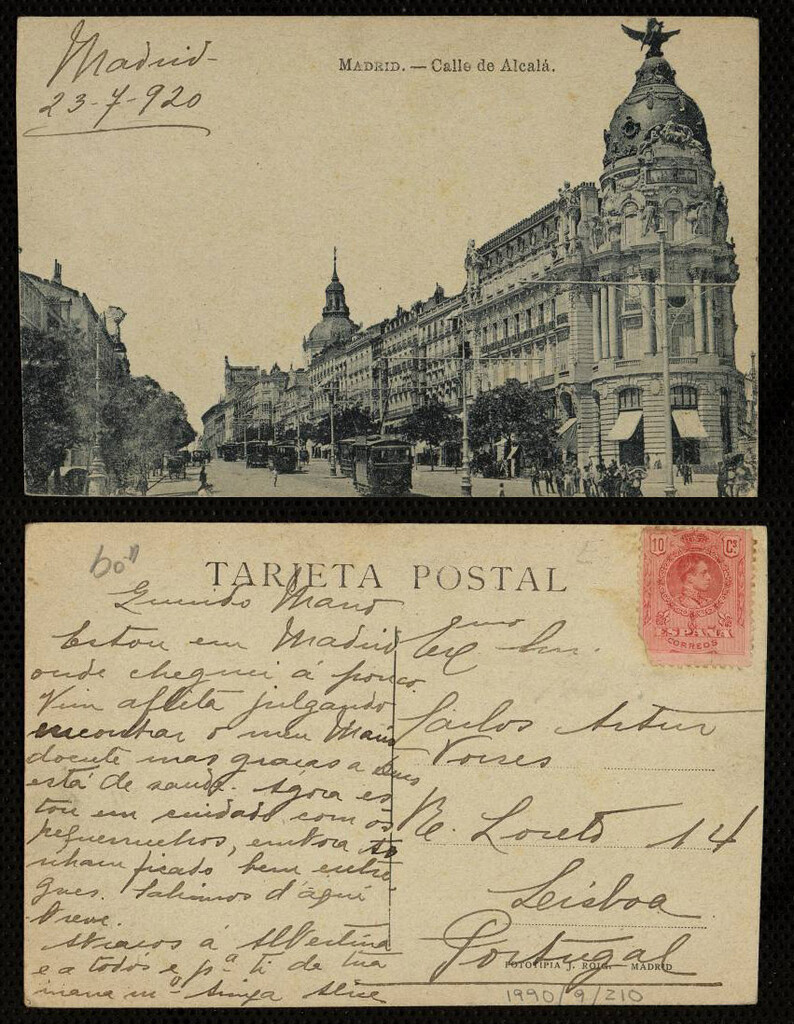 Madrid-
23-7-920
MADRID. — Calle de Alcalá.
60"
TARJETA POSTAL
10 Cs
ESPAÑA
CORREOS
Querido Mano
Estou em Madrid
onde cheguei á pouco.
Vim aflita julgando
encontrar o meu Mario
doente mas graças a Deus
está de saude. Agora es
tou em cuidado com os
pequenuchos, embora te
nham ficado bem entre
gues. Sahimos d'aqui
breve.
Abraços á Albertina
e a todos e pª ti de tua
mana mº amiga Alice
Exmo Snr.
Carlos Artur
R. Loreto 14
Lisboa
Portugal
FOTOTIPIA J. ROIG. — MADRID
1990/9/210